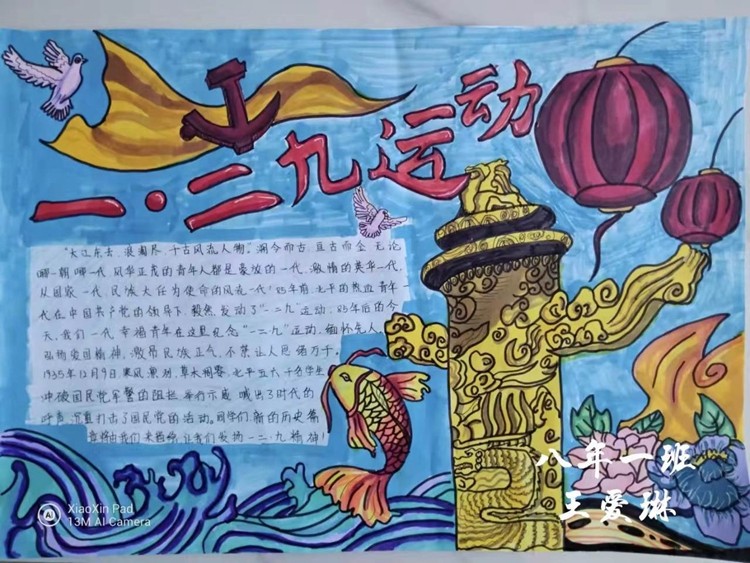 一·二九运动
"大江东去,浪淘尽,千古风流人物。溯今而古,亘古而今,无论
哪一朝哪一代,风华正茂的青年人都是豪放的一代,激情的英华一代,
从国家一代,民族大任为使命的风流一代!85年前,北平的热血青年
代在中国共产党的领导下,毅然发动了"一二九"运动,85年后的今
天,我们一代幸福青年在这里纪念"一二·九"运动,缅怀先人,
弘扬爱国精神,激昂民族正气,不禁让人思绪万千。
1935年12月9日,寒风凛冽,草木凋零,北平五六千名学生
冲破国民党军警的阻拦,举行示威,喊出了时代的
呼声,沉重打击了国民党的活动。同学们,新的历史篇
章将由我们来谱写,让我们发扬一二·九精神!
八年一班
王爱琳
XiaoXin Pad
13M AI Camera